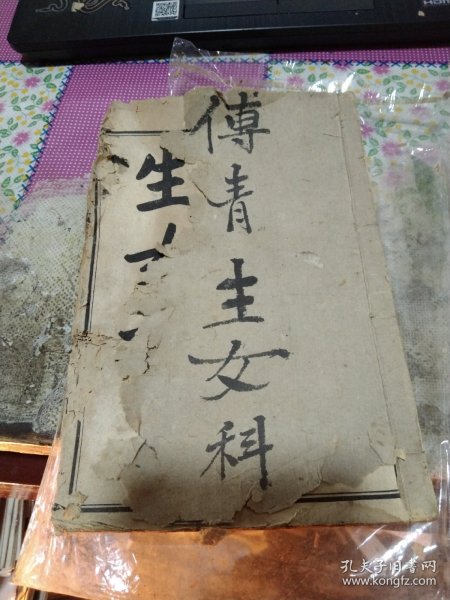 傅青主女科
生
孔夫子旧书网
www.kongfz.com